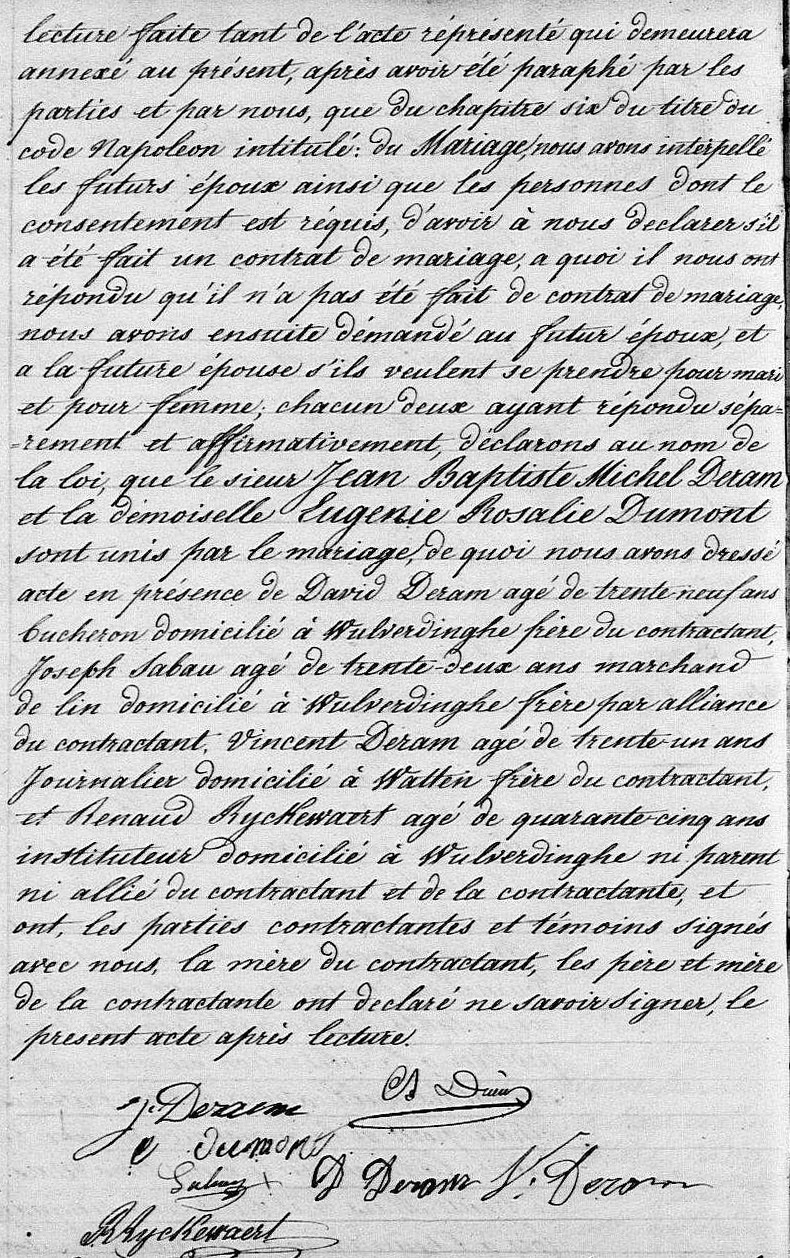 lecture faite tant de l'acte réprésenté qui demeurera
annexé au présent, après avoir été paraphé par les
parties et par nous, que du chapitre six du titre du
code Napoleon intitulé: du Mariage, nous avons interpellé
les futurs époux ainsi que les personnes dont le
consentement est réquis, d'avoir à nous declarer s'il
a été fait un contrat de mariage, a quoi il nous ont
répondu qu'il n'a pas été fait de contrat de mariage,
nous avons ensuite démandé au futur époux, et
a la future épouse s'ils veulent se prendre pour mari
et pour femme; chacun deux ayant répondu sépa=
=rement et affirmativement, déclarons au nom de
la loi, que le sieur Jean Baptiste Michel Deram
et la démoiselle Eugenie Rosalie Dumont
sont unis par le mariage, de quoi nous avons dressé
acte en présence de David Deram agé de trente-neuf ans
bucheron domicilié à Wulverdinghe frère du contractant,
Joseph Sabau agé de trente-deux ans marchand
de lin domicilié à Wulverdinghe frère par alliance
du contractant, Vincent Deram agé de trente-un ans
Journalier domicilié à Watten frère du contractant,
et Renaud Ryckewaert agé de quarante-cinq ans
instituteur domicilié à Wulverdinghe ni parent
ni allié du contractant et de la contractante, et
ont, les parties contractantes et témoins signés
avec nous, la mère du contractant, les père et mère
de la contractante ont declaré ne savoir signer, le
present acte après lecture.
J. Deram
e Dumont
D Deram V. Deram
R Ryckewaert